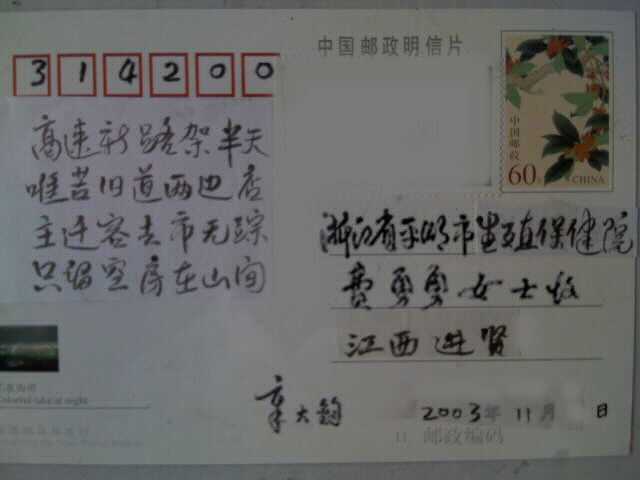 中国邮政明信片
314200
中国邮政
60分
CHINA
高速新路架半天
唯苦旧道两边店
主迁客去市无踪
只留空房在山间
浙江省平湖市生殖保健院
费勇勇女士收
江西进贤
章大钧
2003年11月 日
邮政编码
Colorful lake at night